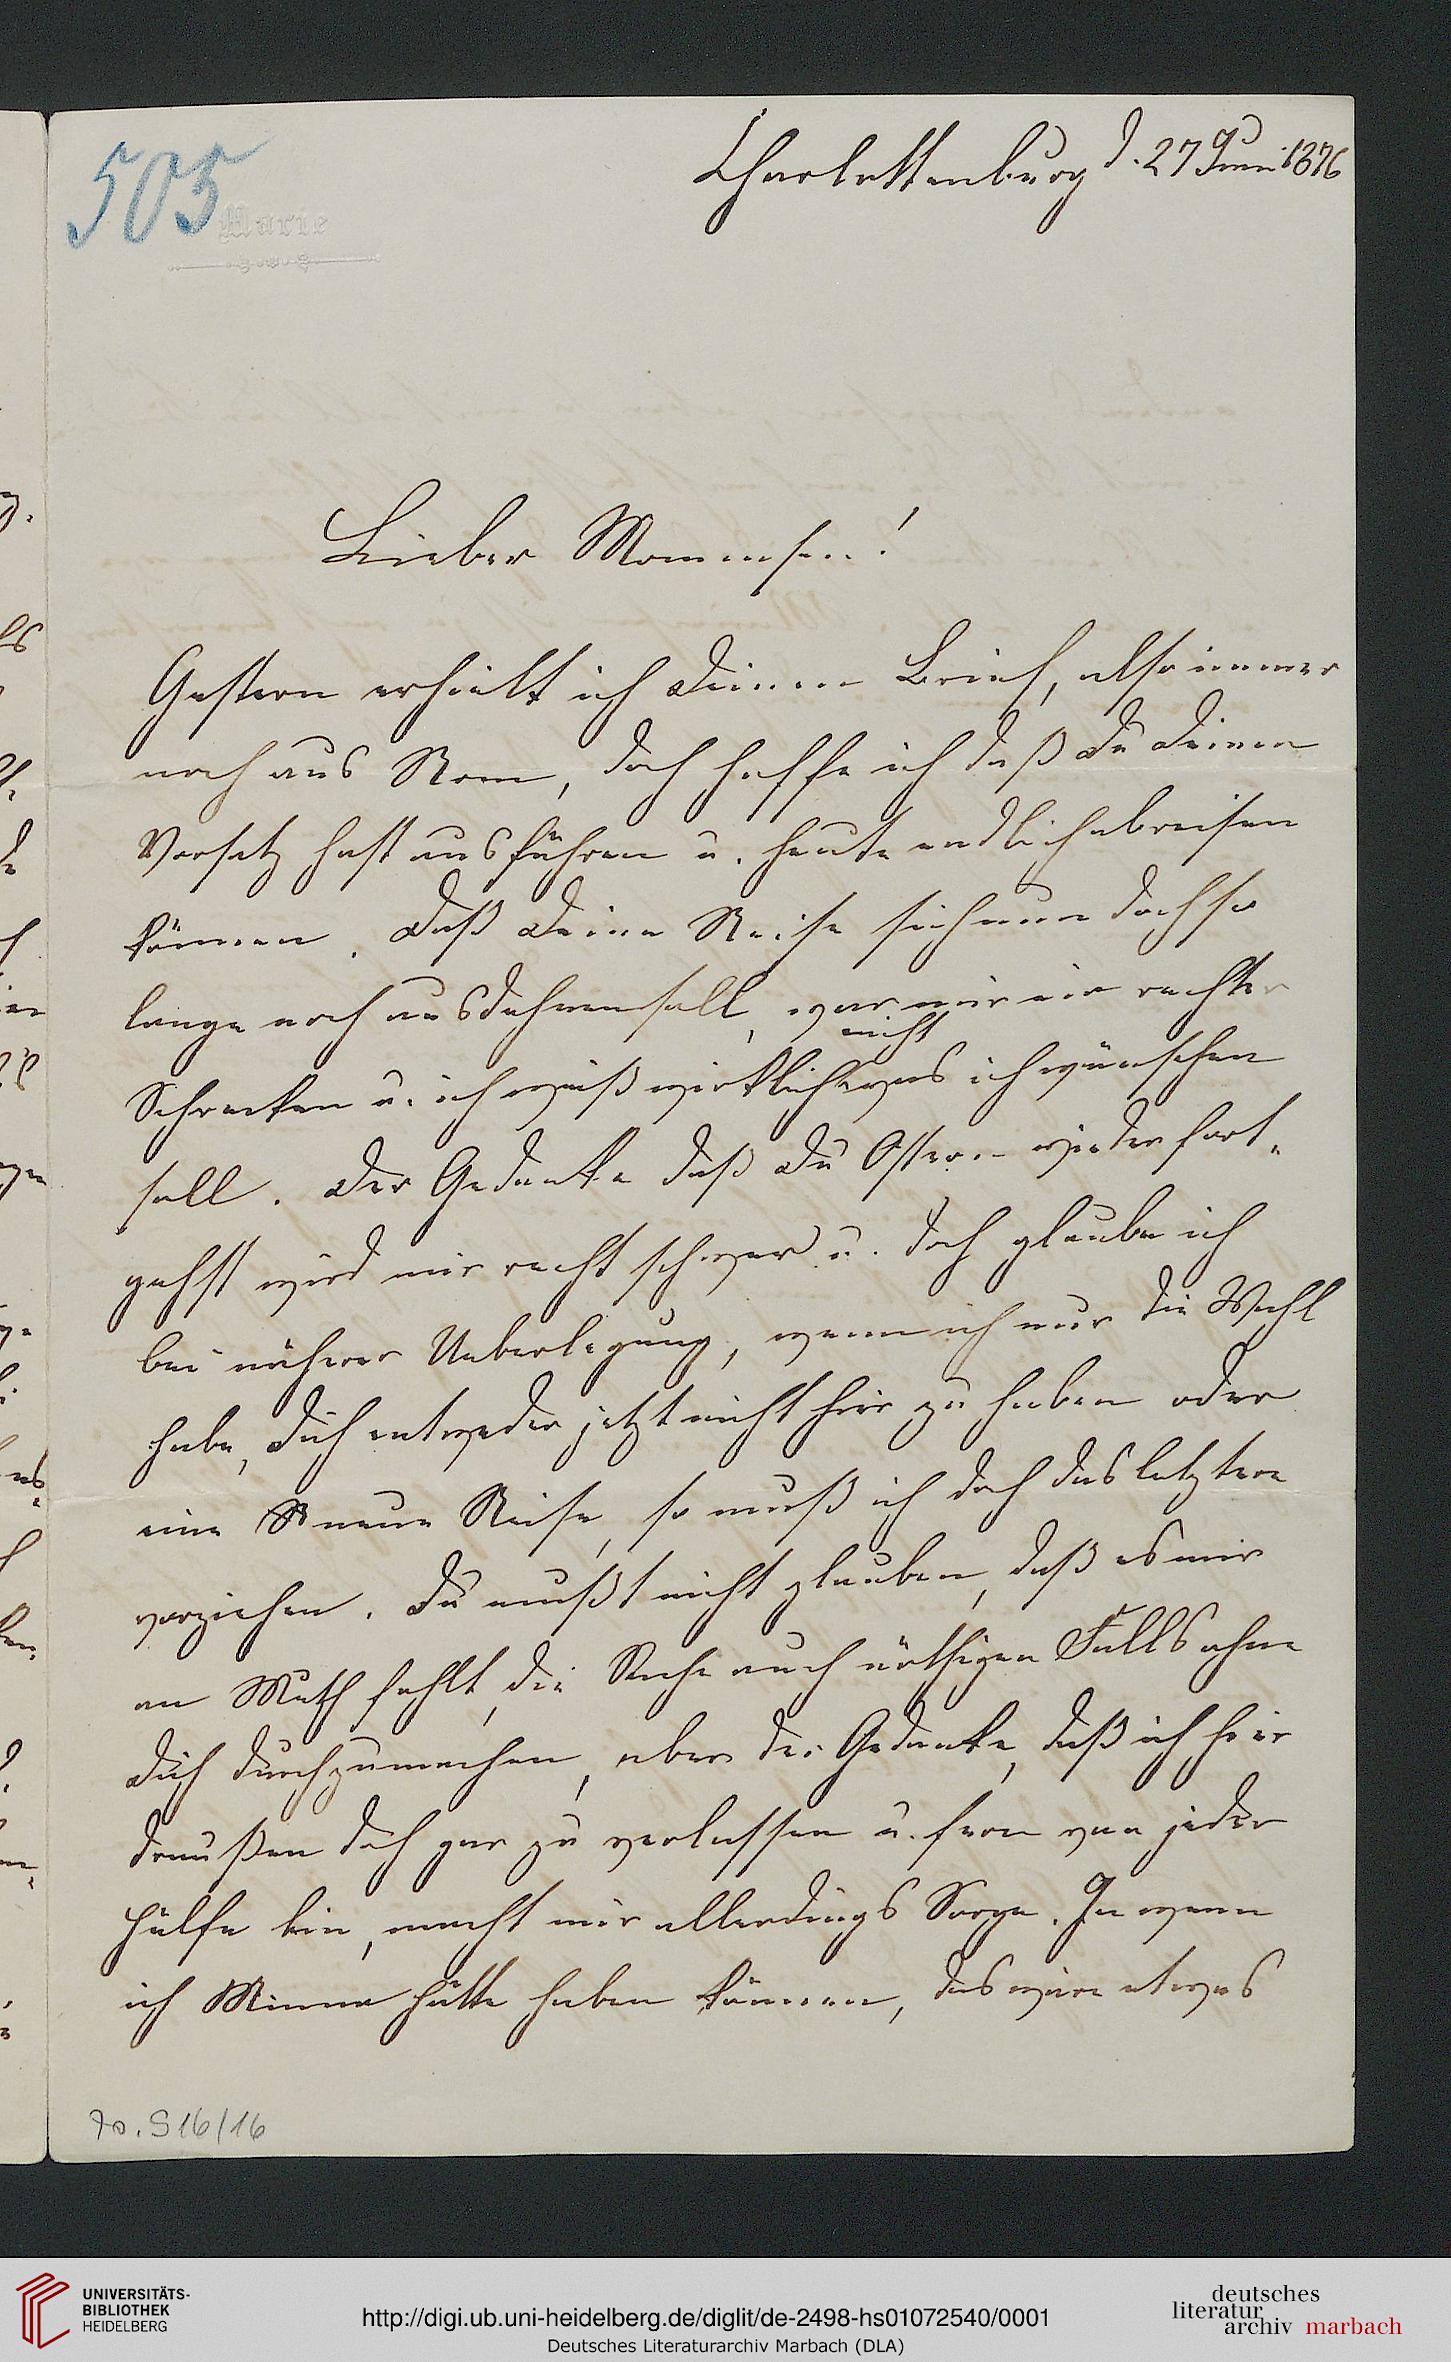 505
Marie
Charlottenburg d. 27 Juni 1876
Lieber Mommsen!
Gestern erhielt ich Deinen Brief, also immer
noch aus Rom, doch hoffe ich daß Du Deinen
Vorsatz hast ausführen u. heute endlich abreisen
können. Daß Deine Reise sich nun doch so
lange noch ausdehnen soll, war mir ein rechter
nicht
Schrecken u. ich weiß wirklich was ich wünschen
soll. Der Gedanke daß Du Ostern wieder fort-
gehst wird mir recht schwer u. doch glaube ich
bei näherer Ueberlegung, wenn ich nur die Wahl
habe, Dich entweder jetzt nicht hier zu haben oder
eine R neue Reise, so muß ich doch das letztere
vorziehen. Du mußt nicht glauben, daß es mir
an Muth fehlt, die Sache auch nöthigen Falls ohne
Dich durchzumachen, aber der Gedanke, daß ich hier
draußen doch gar zu verlassen u. fern von jeder
Hülfe bin, macht mir allerdings Sorge. Ja wenn
ich Minna hätte haben können, das wäre etwas
70. S 16/16
UNIVERSITÄTS-
BIBLIOTHEK
HEIDELBERG
http://digi.ub.uni-heidelberg.de/diglit/de-2498-hs01072540/0001
Deutsches Literaturarchiv Marbach (DLA)
deutsches
literatur
archiv marbach